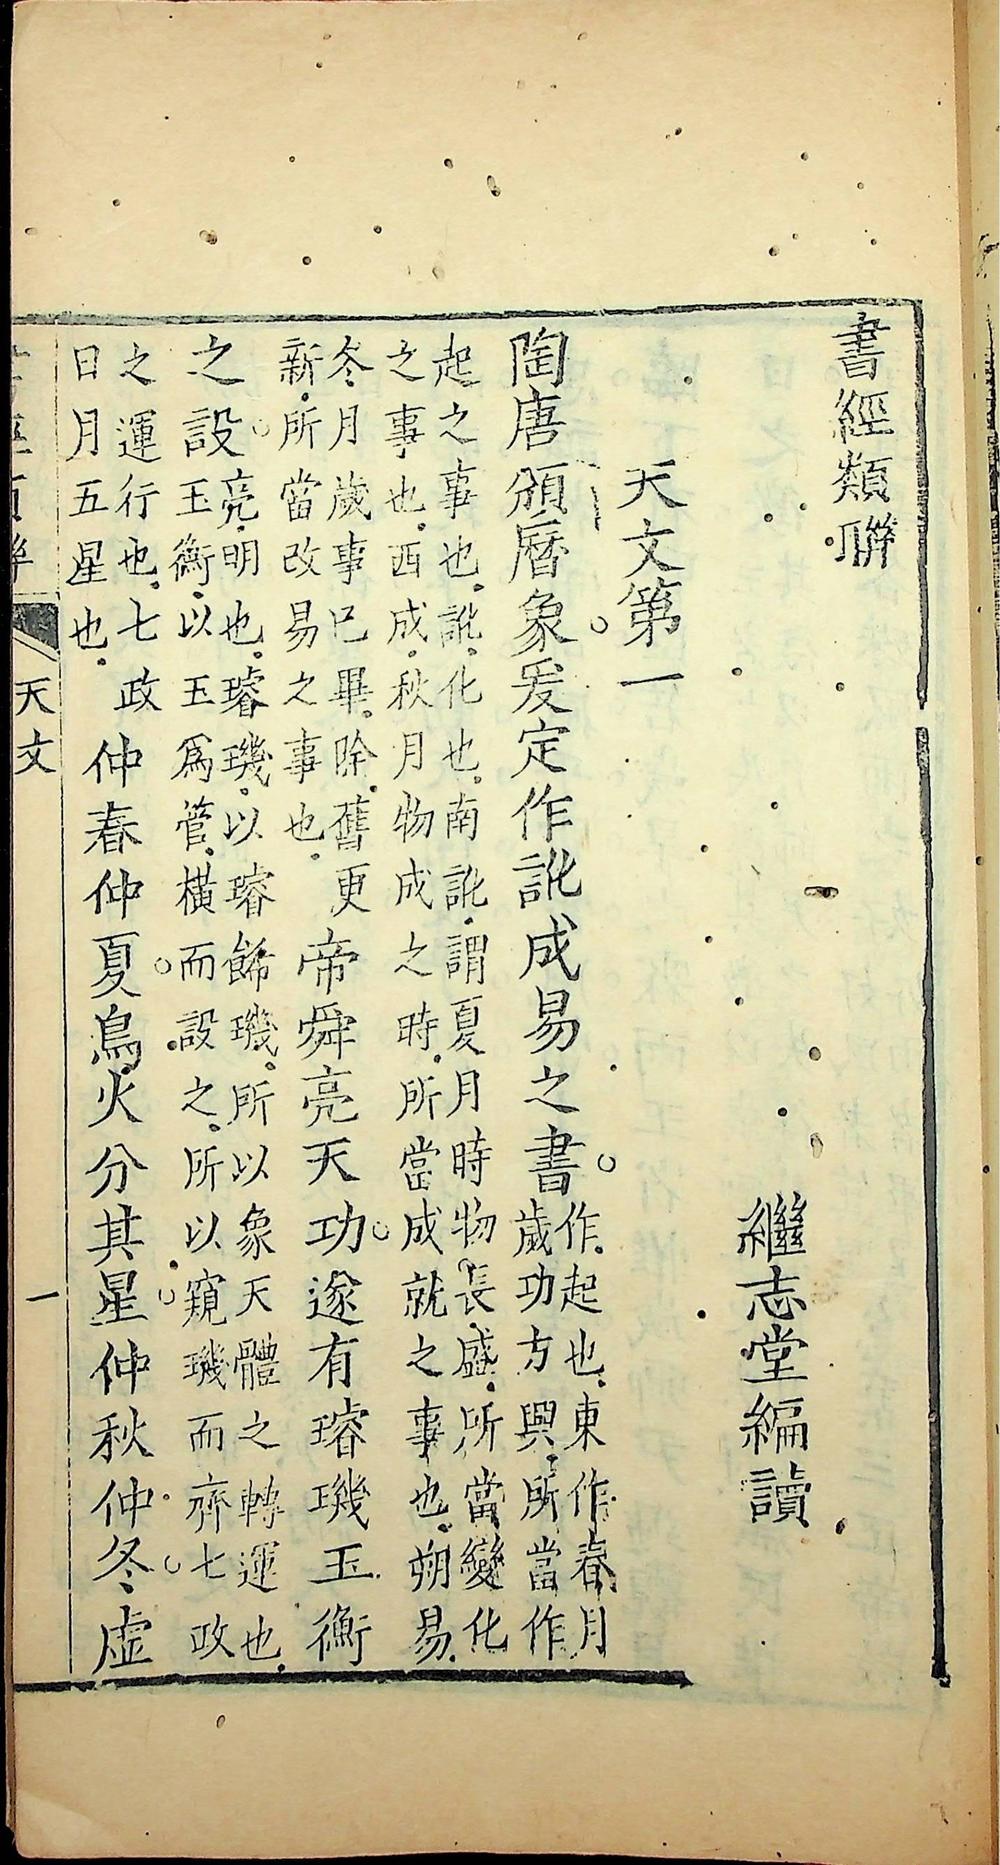 書經類聨
繼志堂編讀
天文第一
陶唐頒曆象爰定作訛成易之書
作起也東作春月
歲功方興所當作
起之事也訛化也南訛謂夏月時物長盛所當變化
之事也西成秋月物成之時所當成就之事也朔易
冬月歲事已畢除舊更
新所當改易之事也
帝舜亮天功遂有璿璣玉衡
之設
亮明也璿璣以璿餙璣所以象天體之轉運也
玉衡以玉爲管橫而設之所以窺璣而齊七政
之運行也七政
日月五星也
仲春仲夏鳥火分其星仲秋仲冬虛
天文
一